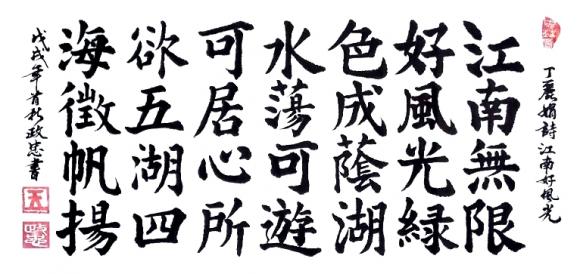 丁麗娟詩江南好風光
江南無限
好風光綠
色成蔭湖
水蕩可遊
可居心所
欲五湖四
海徵帆揚
戊戌年首秋政忠書